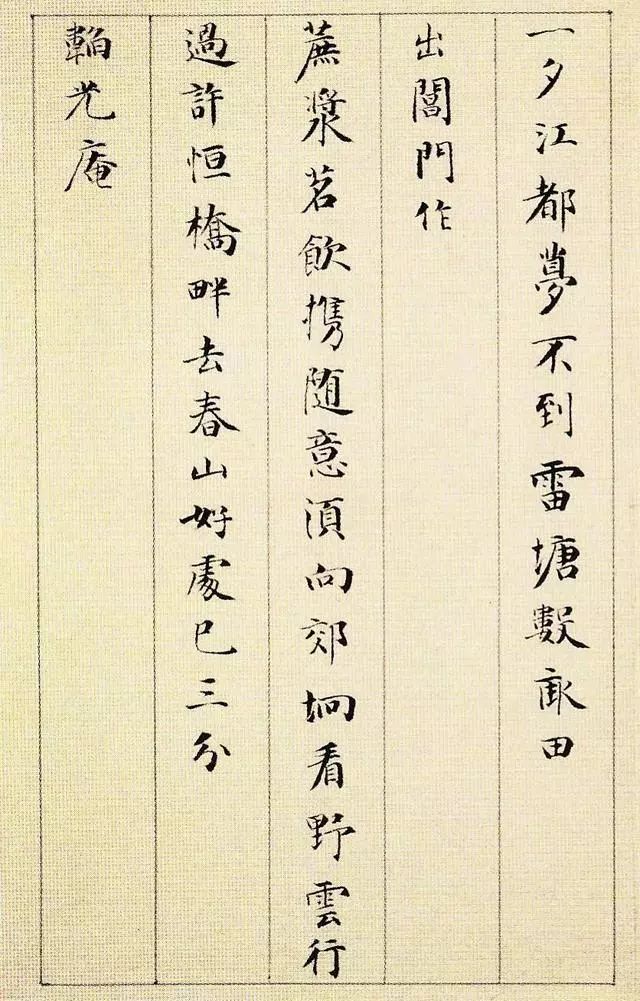 一夕江都夢不到雷塘數畝田
出閶門作
蔗漿茗飲携隨意須向郊坰看野雲行
過許恒橋畔去春山好處已三分
韜光庵